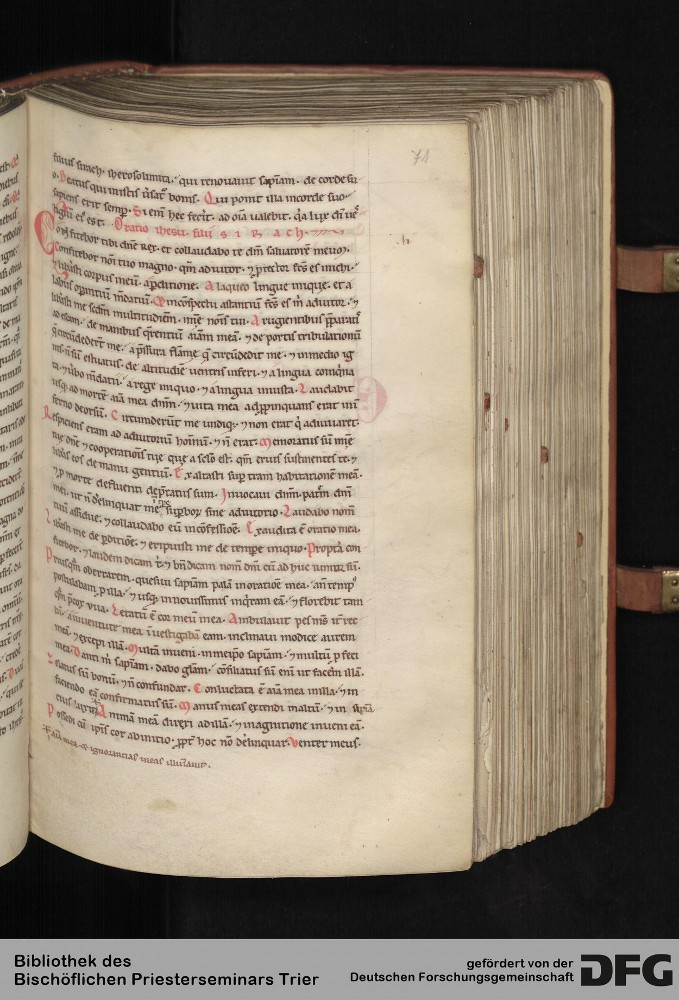 71
filius sirach. iherosolimita. qui renovavit sapīam. de corde su
o. Beatus qui in istis ūsat᷑ bonis. Qui ponit illa in corde suo.
sapiens erit semp̄. Si enī hec fecīt. ad oīa valebit. q̄a lux dī
Oratio ihesu. filii s i R a ch.
Confitebor tibi dn̄e rex. et collaudabo te dm̄ salvatorē meūm.
Confitebor noī tuo magno. qm̄ adiutor. ⁊ ꝓtector es michi.
corpus meū. a ꝑditione. A laqueo lingue inique. et a
labiis operantiū mdatiū. Et in cōspectu astantiū es m̄ adiutor. ⁊
me scdm̄ multitudinē. mīe noīs tui. A rugientibus
ad escam. de manibus q̄rentiū aīam meā. ⁊ de portis tribulationū
q̄ circūdedert̄ me. a p̄ssura flāme q̄ circūdedit me. ⁊ in medio ig
nis. n̄ sū estuatus. de altitudīe ventris inferi. ⁊ a lingua
ta. ⁊ ūbo mdatii. a rege iniquo. ⁊ a lingua iniusta. Laudabit
usq; ad mortē aīa mea dn̄m. ⁊ vita mea apꝓpinquans erat inf
ferno deorsū. Circumderūt me undiq;. ⁊ non erat q̇ adiuvaret.
Respiciens eram ad adiutoriū hominū. ⁊ n̄ erat. Memoratus sū mīe
tue dn̄e. ⁊ cooperationis tue que a sclo st̄. qm̄ eruis sustinentes te. ⁊
liberas eos de manu gentiū. Exaltasti sup̄ tram habitationē meā.
⁊ ꝓ morte defluenti dep̄catus sum. Invocavi dn̄m. patrē dn̄i
mei. ut n̄ derelinquat me suꝑbor sine adiutorio. Laudabo nom̄
tuū assidue. ⁊ collaudabo eū in cōfessiōe. Exaudita ē oratio mea.
Liberasti me de ꝑditiōe. ⁊ eripuisti me de tempe iniquo. Propta con
fitebor. ⁊ laudem dicam t̄. ⁊ bn̄dicam nom̄ dn̄i. cū ad huc iunior sū.
Priusqm̄ oberrarem. quesivi sapiam palā in oratiōe mea. an̄ temp᷒
postulabam ꝑ illa. ⁊ usq; in novissimis inq̄ram eā. ⁊ florebit tam
qm̄ p̄cox uva. Letatū ē cor meū in ea. Ambulavit pes m̄s it̄ rec
tū. a iuventute mea investigabā eam. inclinavi modice aurem
meā. ⁊ excepi illā. Multā inveni. in meipo sapiam. ⁊ multū ꝓfeci
in ea. Danti m̄ sapiam. dabo gl̄am. cōsiliatus sū enī ut facem illā.
Zelatus sū bonū. ⁊ n̄ confundar. Conluctata ē aīa mea in illa. ⁊ in
faciendo eā confirmatus sū. Manus meas extendi in altū. ⁊ in sapia
Animā meā direxi ad illā. ⁊ in agnitione inveni eā.
Possedi cū ipsis cor ab initio. ꝓpt̄ hoc nō derelinquar. Venter meus.
aīa mea. et ignorantias meas illūavit.
Bibliothek des
Bischöflichen Priesterseminars Trier
gefördert von der
Deutschen Forschungsgemeinschaft
DFG